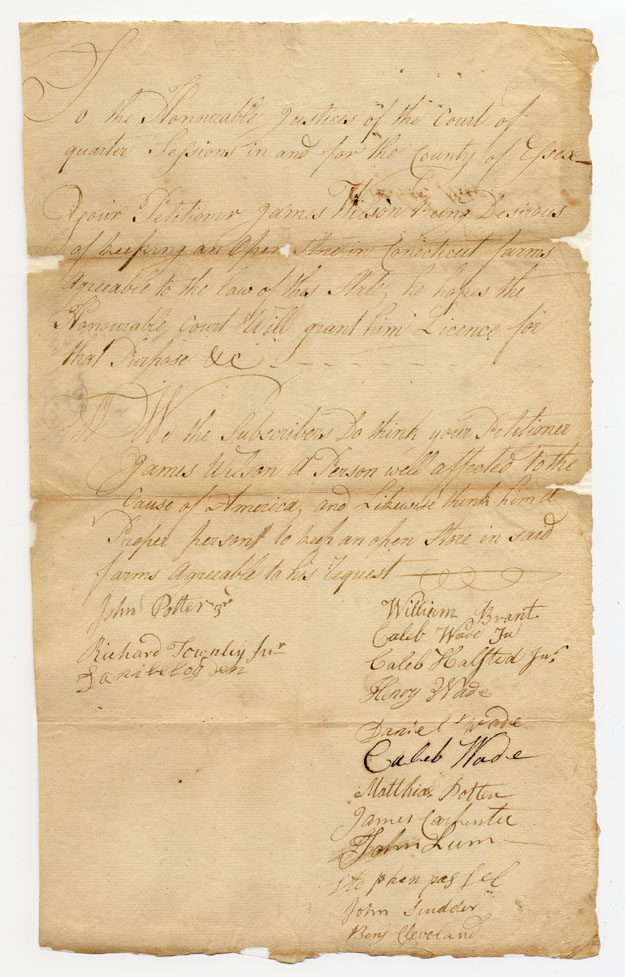 To the Honourable Justices of the Court of
quarter Sessions in and for the County of Essex
your Petitioner James Wilson being Desirous
of keeping an Open Store in Conecticut farms
Agreeable to the law of this State, he hopes the
Honourable Court Will grant him Licence for
that Purpose &c
We the Subscribers Do think your Petitioner
James Wilson A Person well affected to the
Cause of America, and Likewise think him a
Proper person to keep an open Store in said
farms Agreeable to his Request
John Potter 3rd
Richard Townley Junr
William Brant
Caleb Wade Ju
Caleb Halsted Junr
Henry Wade
Daniel Wade
Caleb Wade
Matthias Potter
James Carpenter
John Lum
Stephen passel
John Scudder
Benj Cleveland